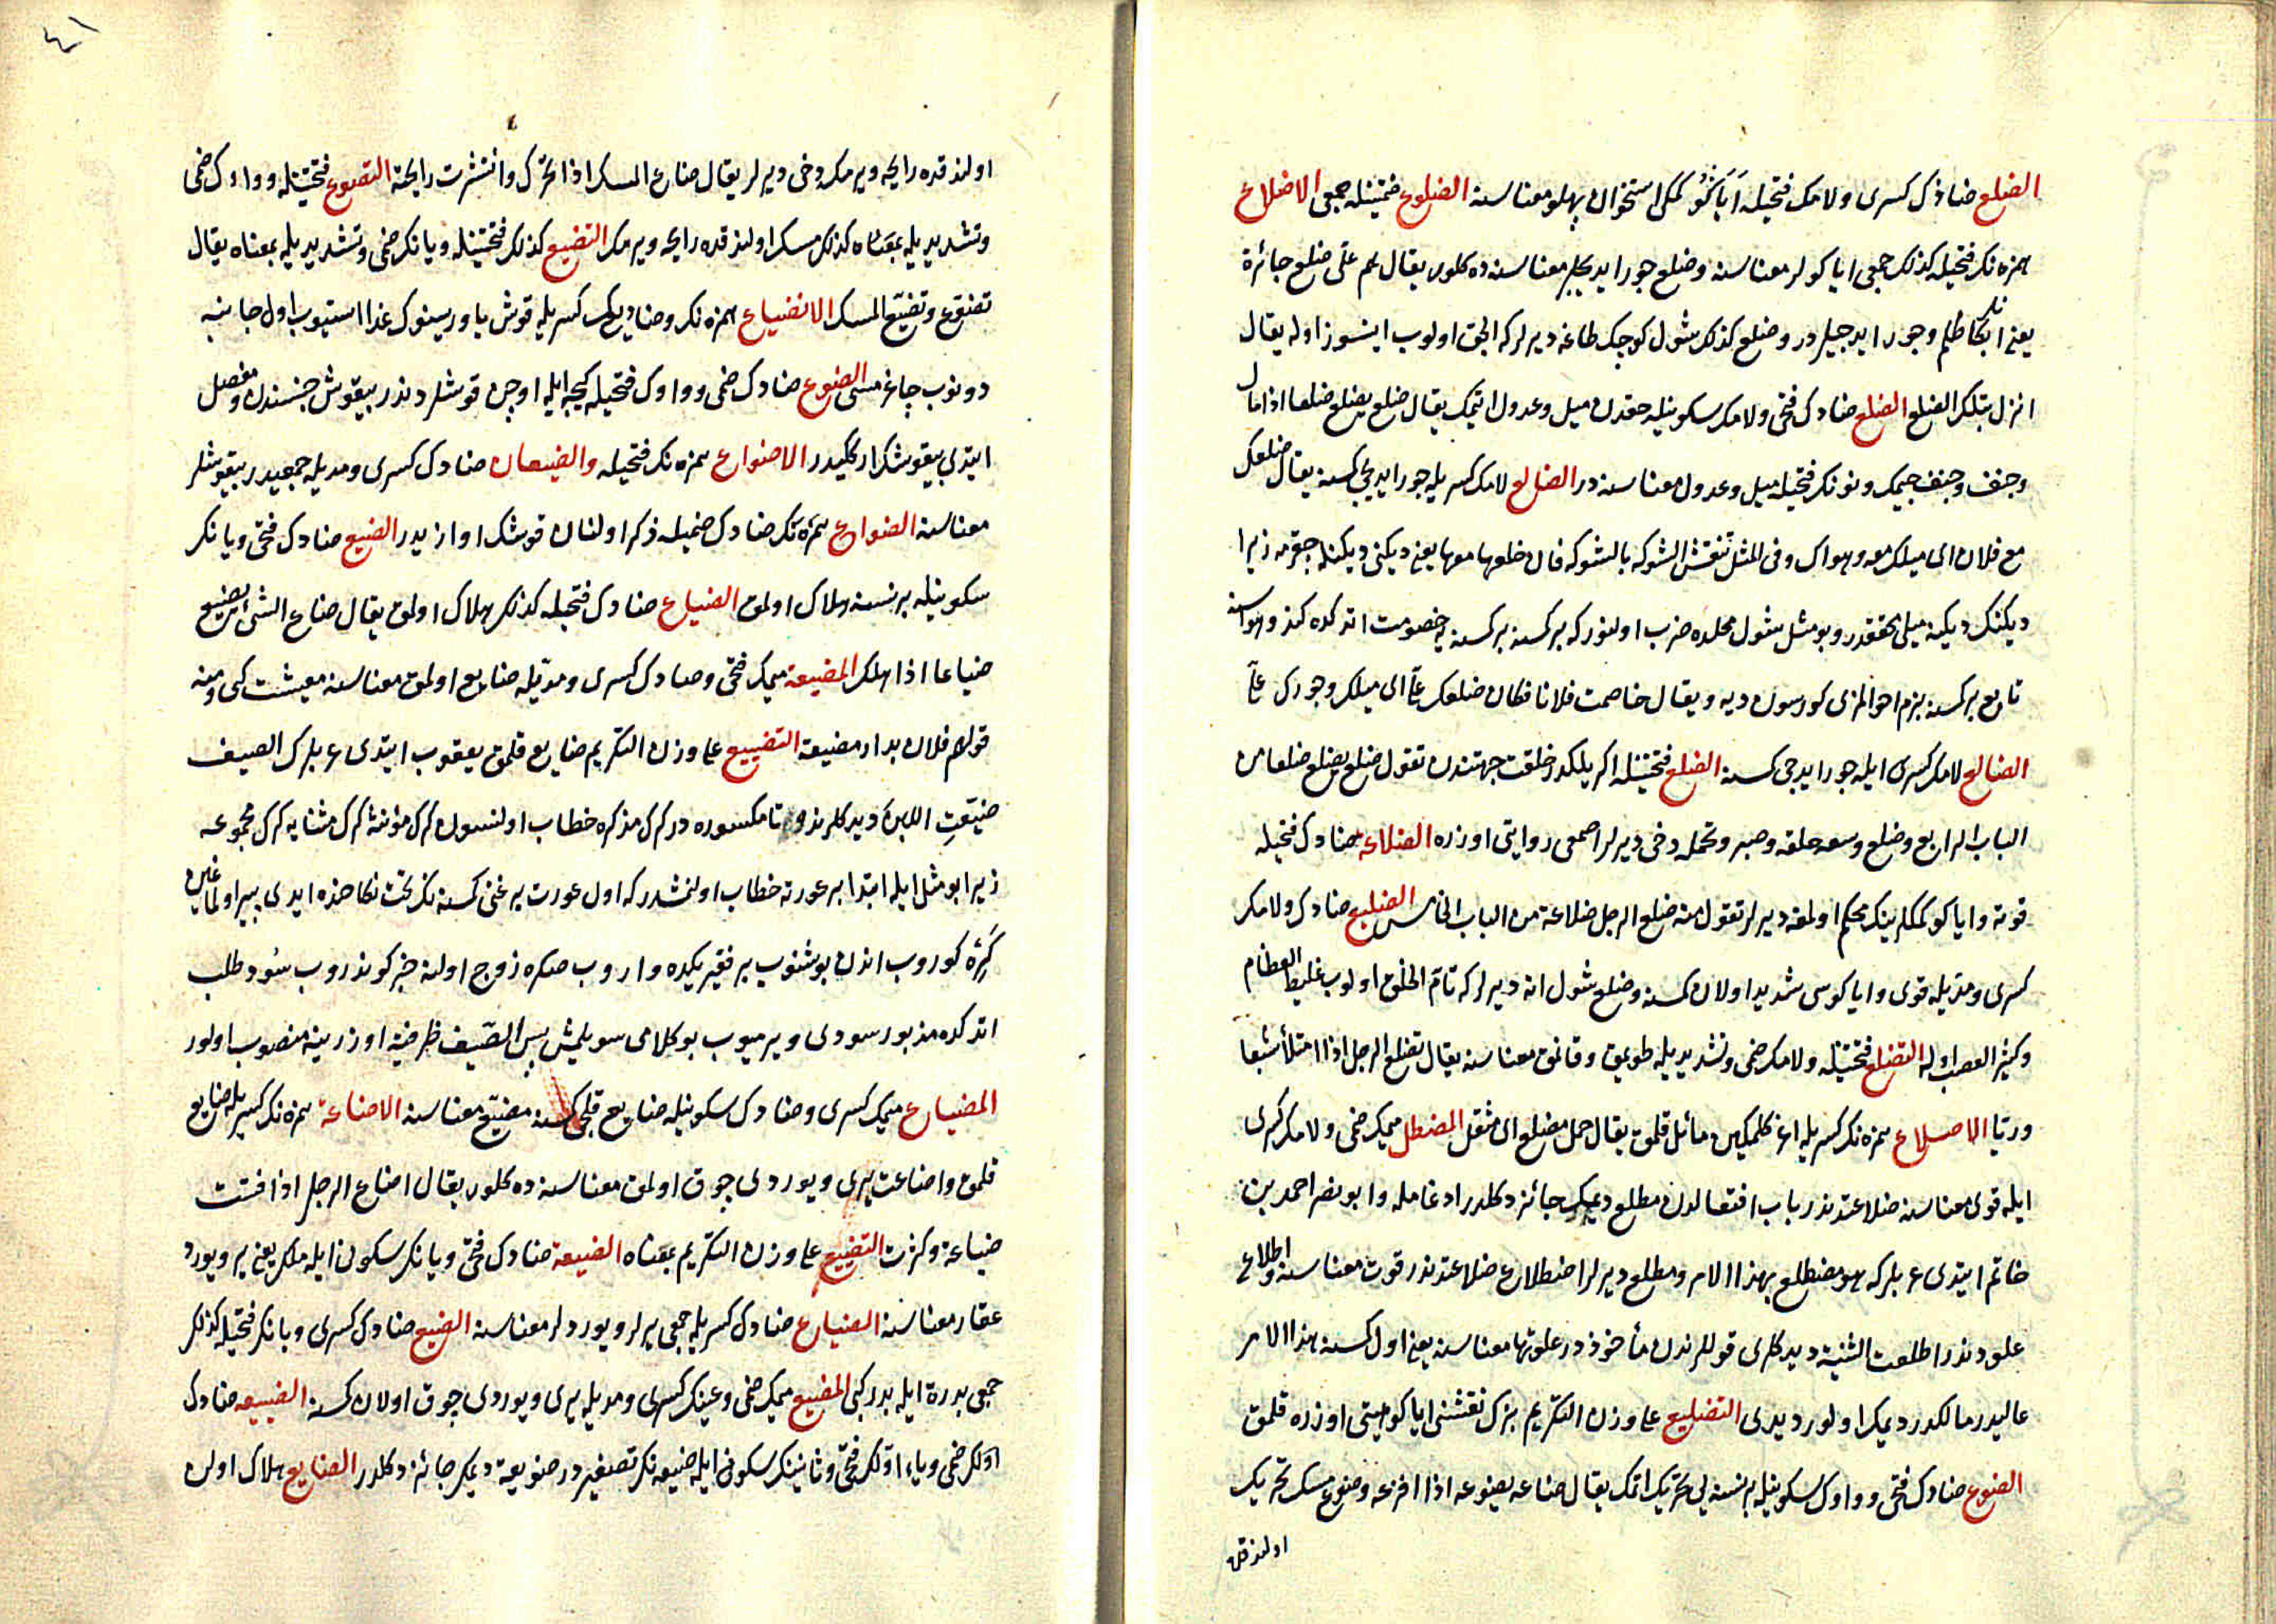 الضلع ضادك كسرى ولامك فتحيله اَيَاكُو كمكى استخوان پهلو معناسنه الضلوع ضمتينله جمعى الاضلاع
همزه نك فتحيله كذلك جمعى اياكولر معناسنه وضلع جور ايديجيلر معناسنه ده كلور يقال هم علىّ ضلع جائرة
يعنى انلر بكا ظلم وجور ايدجيلردر وضلع كذلك شول كوجك طاغه ديرلر كه الجق اولوب اينسوز اوله يقال
انزل بتلك الضلع الضلع ضادك فتحى ولامك سكونيله حقدن ميل وعدول اتمك يقال ضلع يضلع ضلعا اذا مال
وجنف وجنف جيمك ونونك فتحيله ميل وعدول معناسنه در الضالع لامك كسريله جور ايديجى كسنه يقال ضلعك
مع فلان اى ميلك معه وهواك وفى المثل لا تنقش الشوكه بالشوكه فان ضلعها معها يعنى ديكنى ديكنله جقرمه زيرا
ديكنك ديكنه ميلى محققدر وبو مثل شول محلده ضرب اولنور كه بر كسنه بر كسنه يه خصومت اتدكده كندو هواسنه
تابع بر كسنه بزم احوالمزى كورسون ديه ويقال خاصمت فلانا فكان ضلعك علىّ اى ميلك وجورك علىّ
الضالع لامك كسرى ايله جور ايديجى كسنه الضلع فتحتينله اكريلكدر خلقت جهتندن تقول ضلع يضلع ضلعا من
الباب الرابع وضلع وسعه حلقه وصبر وتحمله دخى ديرلر اصمعى روايتى اوزره الضلاعة ضادك فتحيله
قوته واياكو كمكلرينك محكم اولمغه ديرلر تقول منه ضلع الرجل ضلاعة من الباب الخامس الضليع ضادك ولامك
كسرى ومدّيله قوى واياكوسى شديد اولان كسنه وضلع شول اته ديرلر كه تامّ الخلق اولوب غليظ العظام
وكثير العصب اوله التضلع فتحتينله ولامك ضمى وتشديديله طويمق وقانمق معناسنه يقال تضلع الرجل اذا امتلأ شبعا
وريّا الاضلاع همزه نك كسريله اغر كلمكين مائل قلمق يقال حمل مضلع اى مثقل المضطلع ميمك ضمى ولامك كسرى
ايله قوى معناسنه ضلاعتدندر باب افتعالدن مطلع ديمك جائز دكلدر ادغامله وابو نصر احمد بن
حاتم ايتدى عربلر كه هو مضطلع بهذا الامر ومطلع ديرلر اضطلاع ضلاعتدندر قوت معناسنه واطلاع
علودندر اطلعت الثنية ديدكلرى قوللرندن مأخوذدر علوتها معناسنه يعنى اول كسنه بهذا الامر
عاليدر مالكدر ديمك اولور ديدى التضليع على وزن التكريم بزك نقشنى اياكو هيئتى اوزره قلمق
الضوع ضادك فتحى وواوك سكونيله بر نسنه يى تحريك اتمك يقال ضاعه يضوعه اذا افزعه وضوع مسك تحريك
اولندقده
٤١
اولندقده رايحه ويرمكه دخى ديرلر يقال ضاع المسك اذا تحرّك وانتشرت رايحته التضوع فتحتينله وواوك ضمى
وتشديديله بمعناه كذلك مسك اولندقده رايحه ويرمك التضيع كذلك فتحتينله ويانك ضمى وتشديديله بمعناه يقال
تضوّع وتضيّع المسك الانضياع همزه نك وضاديك كسريله قوش ياوريسنوك غدا استيوب اول جانبه
دونوب جاغرمسى الضوع ضادك ضمى وواوك فتحيله كيجه ايله اوچن قوشلردندر بيقوش جنسندن ومفضل
ايتدى بيقوشك اركيدر الاضواع همزه نك فتحيله والضيعان ضادك كسرى ومديله جمعيدر بيقوشلر
معناسنه الضواع همزه نك ضادك ضميله ذكر اولنان قوشك اوازيدر الضيع ضادك فتحى ويانك
سكونيله بر نسنه هلاك اولمق الضياع ضادك فتحيله كذلك هلاك اولمق يقال ضاع الشئ يضيع
ضياعا اذا هلك المضيعة ميمك فتحى وضادك كسرى ومدّيله ضايع اولمق معناسنه معيشت كبى ومنه
قولهم فلان بدار مضيعة التضييع على وزن التكريم ضايع قلمق يعقوب ايتدى عربلرك الصيف
ضيّعتِ اللبن ديدكلرنده تا مكسوره در كرك مذكره خطاب اولنسون كرك مؤنثه كرك مثنايه كرك مجموعه
زيرا بو مثل ايله ابتدا بر عورته خطاب اولنمشدر كه اول عورت بر غنى كسنه نك تحت نكاحنده ايدى پير اولمغين
كَرْه كوروب اندن بوشنوب بر فقير يكده واروب صكره زوج اولنه خبر كوندروب سُود طلب
اتدكده مذبور سودى ويرميوب بو كلامى سويلمش پس الصّيف ظرفيّة اوزرينه منصوب اولور
المضياع ميمك كسرى وضادك سكونيله ضايع قلجى كسنه مضيّع معناسنه الاضاعة همزه نك كسريله ضايع
قلمق واضاعت يرى ويوردى چوق اولمق معناسنه ده كلور يقال اضاع الرجل اذا فشت
ضياعه وكثرت التضييع على وزن التكريم بمعناه الضيعة ضادك فتحى ويانك سكونى ايله ملك يعنى ير ويورد
عقار معناسنه الضياع ضادك كسريله جمعى يرلر ويوردلر معناسنه الضيع ضادك كسرى ويانك فتحيله كذلك
جمعى بدرة ايله بدر كبى المضيع ميمك ضمى وعينك كسرى ومديله يرى ويوردى چوق اولان كسنه الضييعه ضادك
اوّلك ضمى وياء اوّلك فتحى وثانينك سكونى ايله ضيعه نك تصغيريدر ضويعة ديمك جائز دكلدر الضايع هلاك اولن